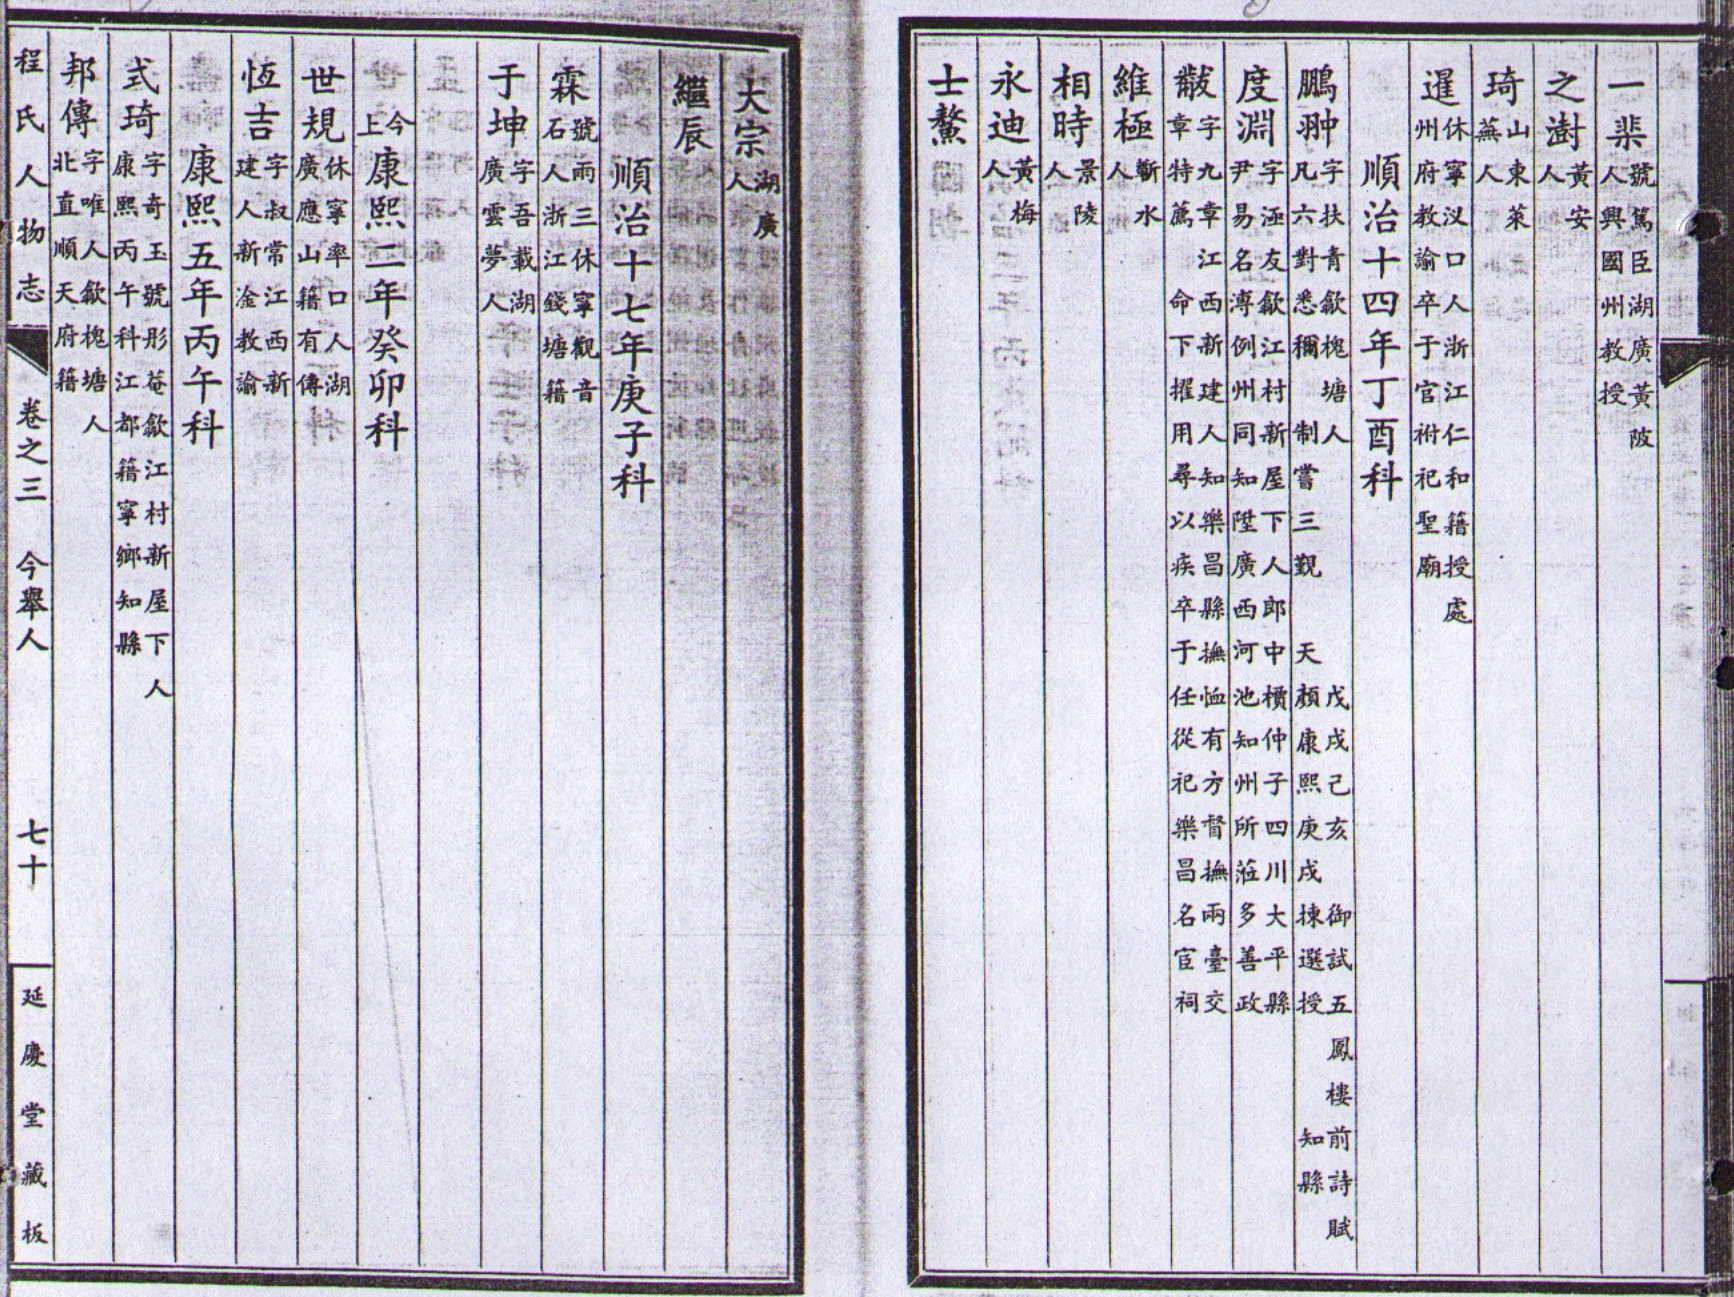 一棐 號篤臣湖廣黃陂
人興國州教授
之澍 黃安
人
琦 山東萊
蕪人
暹 休寧汊口人浙江仁和籍授處
州府教諭卒于官祔祀聖廟
順治十四年丁酉科
鵬翀 字扶青歙槐塘人 戊戌己亥 御試五鳳樓前詩賦
凡六對悉稱 制嘗三覲 天顏康熙庚戌揀選授 知縣
度淵 字涵友歙江村新屋下人郎中檟仲子四川大平縣
尹易名溥例州同知陞廣西河池知州所蒞多善政
黻 字九章江西新建人知樂昌縣撫恤有方督撫兩臺交
章特薦 命下擢用尋以疾卒于任從祀樂昌名宦祠
維極 蘄水
人
相時 景陵
人
永迪 黃梅
人
士鰲
大宗 湖廣
人
繼辰
順治十七年庚子科
霖 號雨三休寧觀音
石人浙江錢塘籍
于坤 字吾載湖
廣雲夢人
今
上
康熙二年癸卯科
世規 休寧率口人湖
廣應山籍有傳
恆吉 字叔常江西新
建人新淦教諭
康熙五年丙午科
式琦 字奇玉號彤菴歙江村新屋下人
康熙丙午科江都籍寧鄉知縣
邦傳 字唯人歙槐塘人
北直順天府籍
程氏人物志 卷之三 今舉人 七十 延慶堂藏板